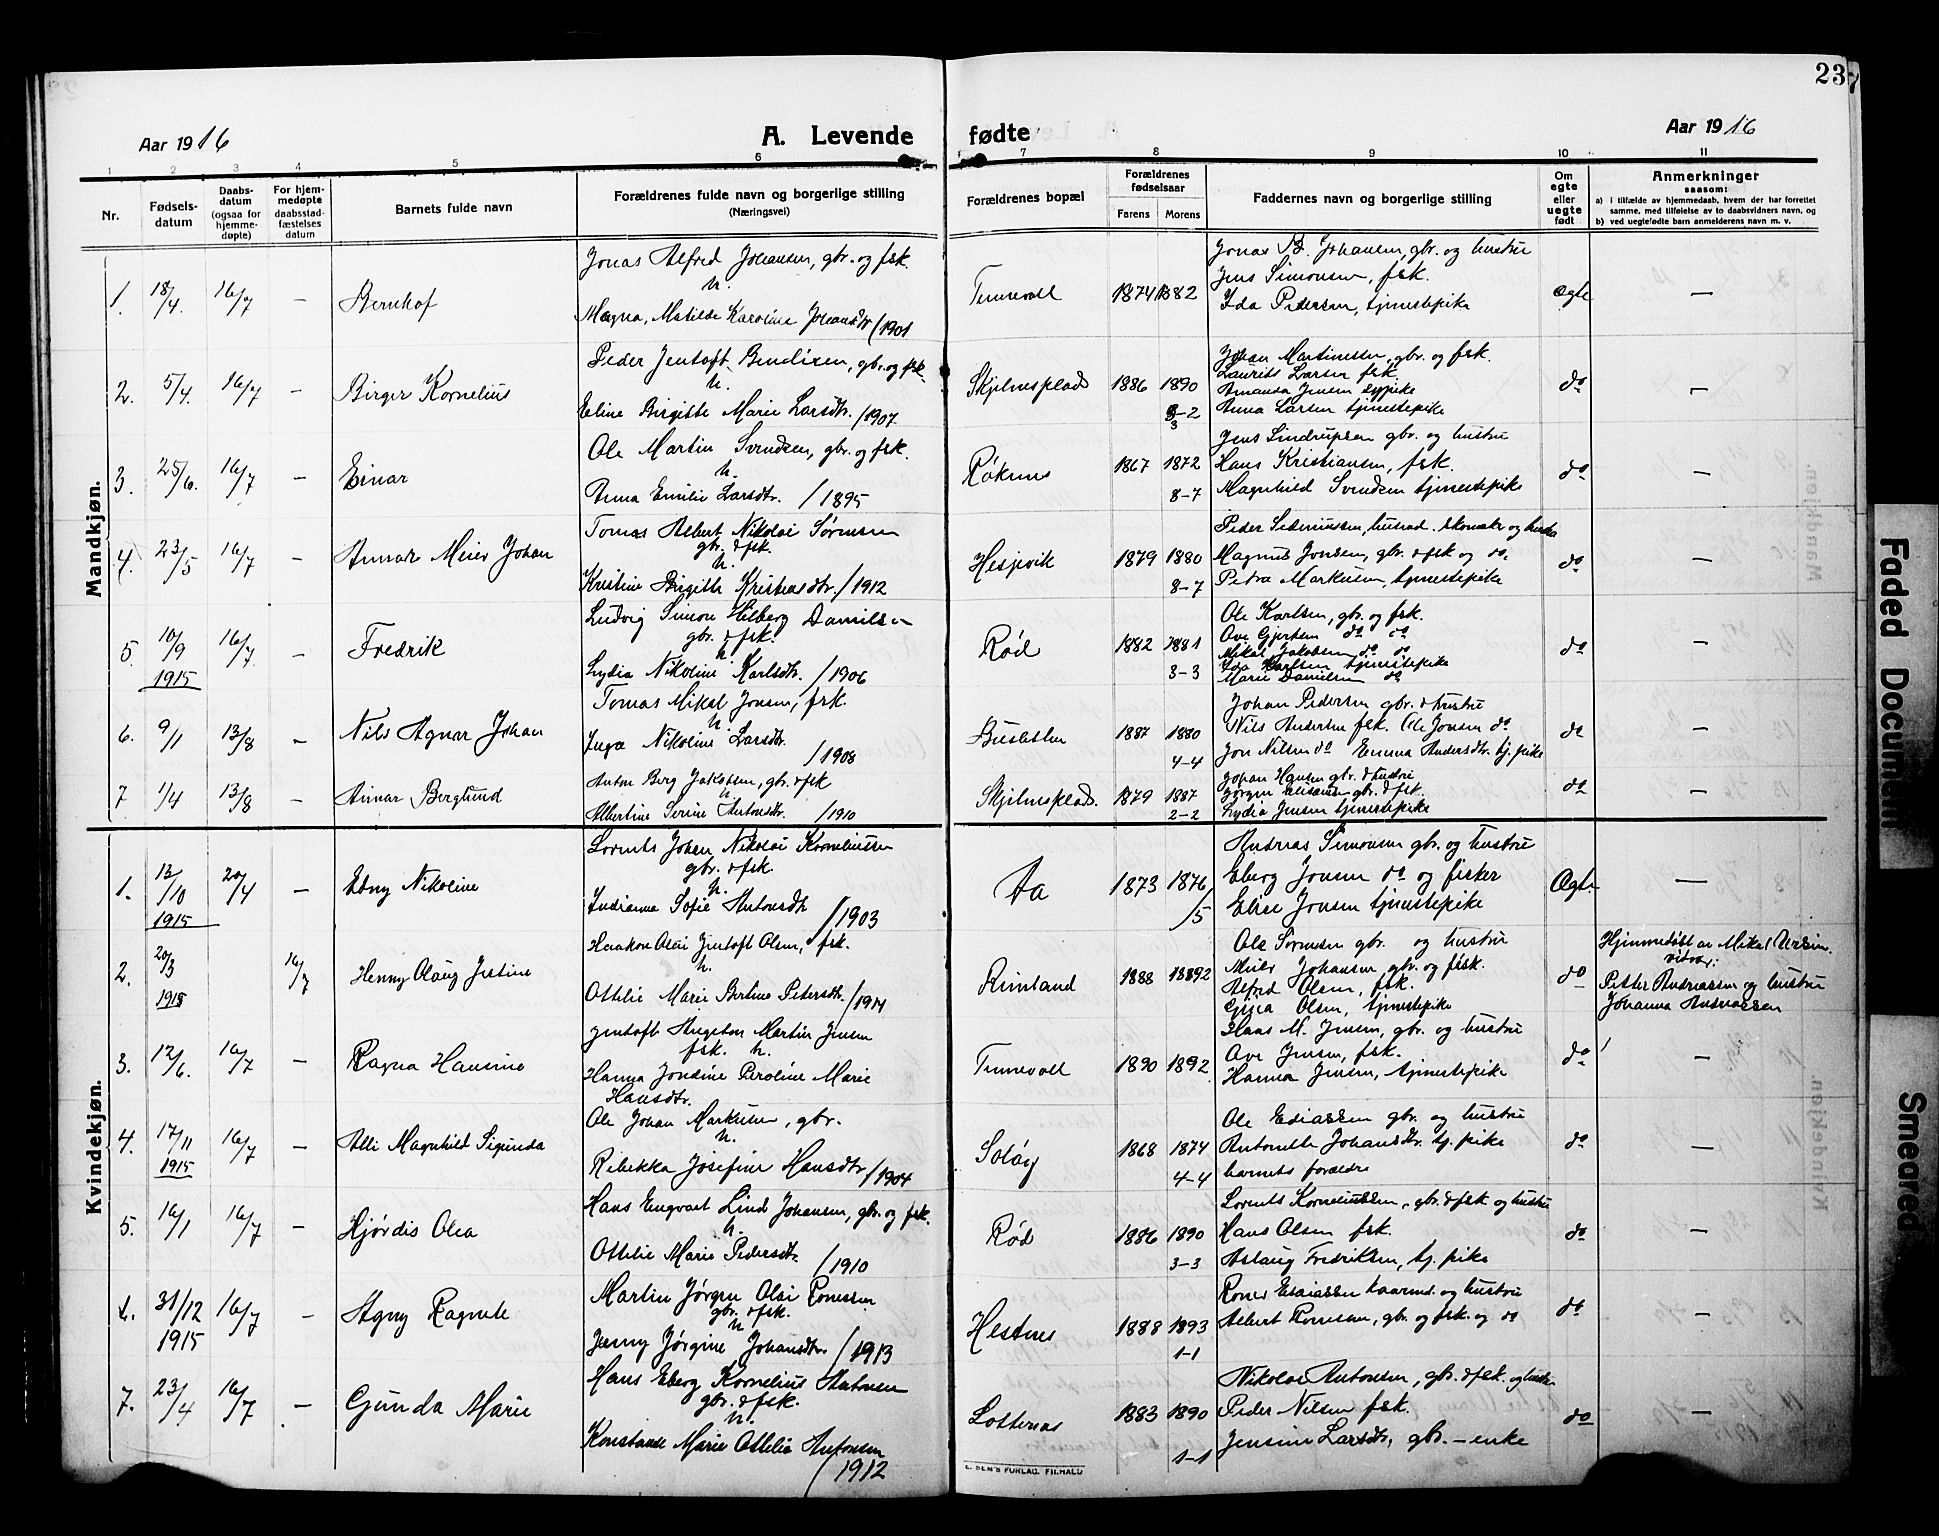 23
Aar 1916
A. Levende fødte
Aar 1916
1 2 3 4 5 6 7 8 9 10 11
Nr.
Fødsels-
datum
Daabs-
datum
(ogsaa for
hjemme-
døpte)
For hjem-
medøpte
daabsstad-
fæstelses
datum
Barnets fulde navn
Forældrenes fulde navn og borgerlige stilling
(Næringsvei)
Forældrenes bopæl
Forældrenes
fødselsaar
Farens Morens
Faddernes navn og borgerlige stilling
Om
egte
eller
uegte
født
Anmerkninger
saasom:
a) i tilfælde av hjemmedaab, hvem der har forrettet
samme, med tilføielse av to daabsvidners navn, og
b) ved uegtefødte barn anmelderens navn m. v.
Mandkjøn.
1. 18/4. 16/7 — Bernhof
Jonas Alfred Johansen, gbr. og fsk.
h.
Magna, Matilde Karoline Johansdtr /1901
Tennevoll 1874 1882
Jonas B. Johansen, gbr. og hustru
Jens Simonsen, fsk.
Ida Pedersen, tjenestepike
Ægte —
2. 5/4. 16/7 — Birger Kornelius
Peder Jentoft Bendixen, gbr. og fsk.
h.
Eline Birgitte Marie Larsdtr. /1907
Skjelnesplads 1886 1890
3-2
Johan Martinussen, gbr. og fsk.
Laurits Larsen fsk.
Amanda Jensen sypike
Anna Larsen tjenestepike
do —
3. 25/6. 16/7 — Einar
Ole Martin Svendsen, gbr. og fsk.
h.
Anna Emilie Larsdtr. /1895
Røknes 1867 1872
8-7
Jens Lindrupsen gbr. og hustru
Hans Kristiansen, fsk.
Magnhild Svendsen tjenestepike
do —
4. 23/5 16/7 — Annar Meier Johan
Tomas Albert Nikolai Sørensen
gbr. & fsk.
h.
Kristine Birgitte Kristensdtr. /1912
Hesjevik 1879 1880
8-7
Magnus Jonsen, gbr. & fsk og do.
Petra Markusen, tjenestepike
do —
5. 10/9 16/7. — Fredrik
1915
Ludvig Simon Hilberg Danielsen
gbr. & fsk.
h.
Lydia Nikoline Karlsdtr. /1906
Rød 1882 1881
3-3
Ole Karlsen, gbr. og fsk.
Ove Gjertsen do do
Mikal Jakobsen do do
Ida Karlsen tjenestepike
Marie Danielsen do
do —
6. 9/1 13/8 — Nils Agnar Johan
Tomas Mikal Jonsen, fsk.
h.
Inga Nikoline Larsdtr.
/1908
1887 1880
4-4
Johan Pedersen gbr. & hustru
Nils Andersen fsk. Ole Jonsen do
Jon Nilsen do Emma Andersdtr. tj. pike
do —
7 1/4 13/8 — Annar Berglund
Anton Berg Jakobsen, gbr. & fsk
h
Albertine Serine Antonsdtr. /1910
Skjelnesplads. 1879 1887
2-2
Johan Hansen gbr. & hustru
Jørgen Eliassen gbr. & fsk.
Lydia Jensen tjenestepike
do —
Kvindekjøn.
1. 13/10 20/4 — Edny Nikoline
1915
Lorents Johan Nikolai Korneliussen
gbr. & fsk.
h.
Indianna Sofie Antonsdtr. /1903
Aa 1873 1876
/5
Andreas Simonsen gbr. og hustru
Eberg Jonsen do og fisker
Elise Jonsen tjenestepike
Ægte —
2. 20/3 16/7 Henny Olaug Jestine
Haakon Olai Jentoft Olsen, fsk.
h.
Ottilie Marie Bertine Petersdtr. /1914
Rinland 1888 18892
Ole Sørensen gbr. og hustru
Meier Johansen gbr. og fisk.
Alfred Olsen, fsk.
Olsen, tjenestepike
do
Hjemmedøbt av Mikal Ursin.
vitner:
Petter Andreassen og hustru
Johanna Andreassen
3. 12/6. 16/7 — Ragna Hansine
Jentoft Angelton Martin Jensen
fsk. h.
Hanna Jondine Peroline Marie
Hansdtr.
Tennevoll 1890 1892
Hans M. Jensen, gbr. og hustru
Ove Jensen, fsk.
Hanna Jensen, tjenestepike
do —
4. 17/11 16/7 — Alli Magnhild Sigunda
1915
Ole Johan Markusen, gbr.
h.
Rebekka Josefine Hansdtr /1904
Soløy 1868 1874
4-4
Ole Esiassen gbr. og hustru
Antonette Johansdtr. tj. pike
barnets forældre
do —
5. 16/1 16/7 — Hjørdis Olea
Hans Engvart Lind Johansen, gbr. og fsk.
h.
Ottilie Marie Pedersdtr. /1910
Rød 1886 1890
3-3
Lorents Korneliussen, gbr. & fsk og hustru
Hans Olsen fsk.
Aslaug Fredriksen, tj. pike
do —
6. 31/12 16/7 — Agny Ragnete
1915
Martin Jørgen Olai Ronessen
gbr. & fsk.
h
Jenny Jørgine Johansdtr. /1913
Hestnes 1888 1893
1-1
Albert Ronessen, gbr. og fsk. og do
do —
7. 23/4 16/7 — Gunda Marie
Hans Eberg Kornelius Antonsen
gbr. & fsk.
h.
Konstanse Marie Ottilie Antonsen
/1912
1883 1890
1-1
Nikolai Antonsen, gbr. & fsk. og hustru
Peder Nilsen fsk.
Jensine Larsdtr, gbr. — enke
do —
Faded Document
Smeared